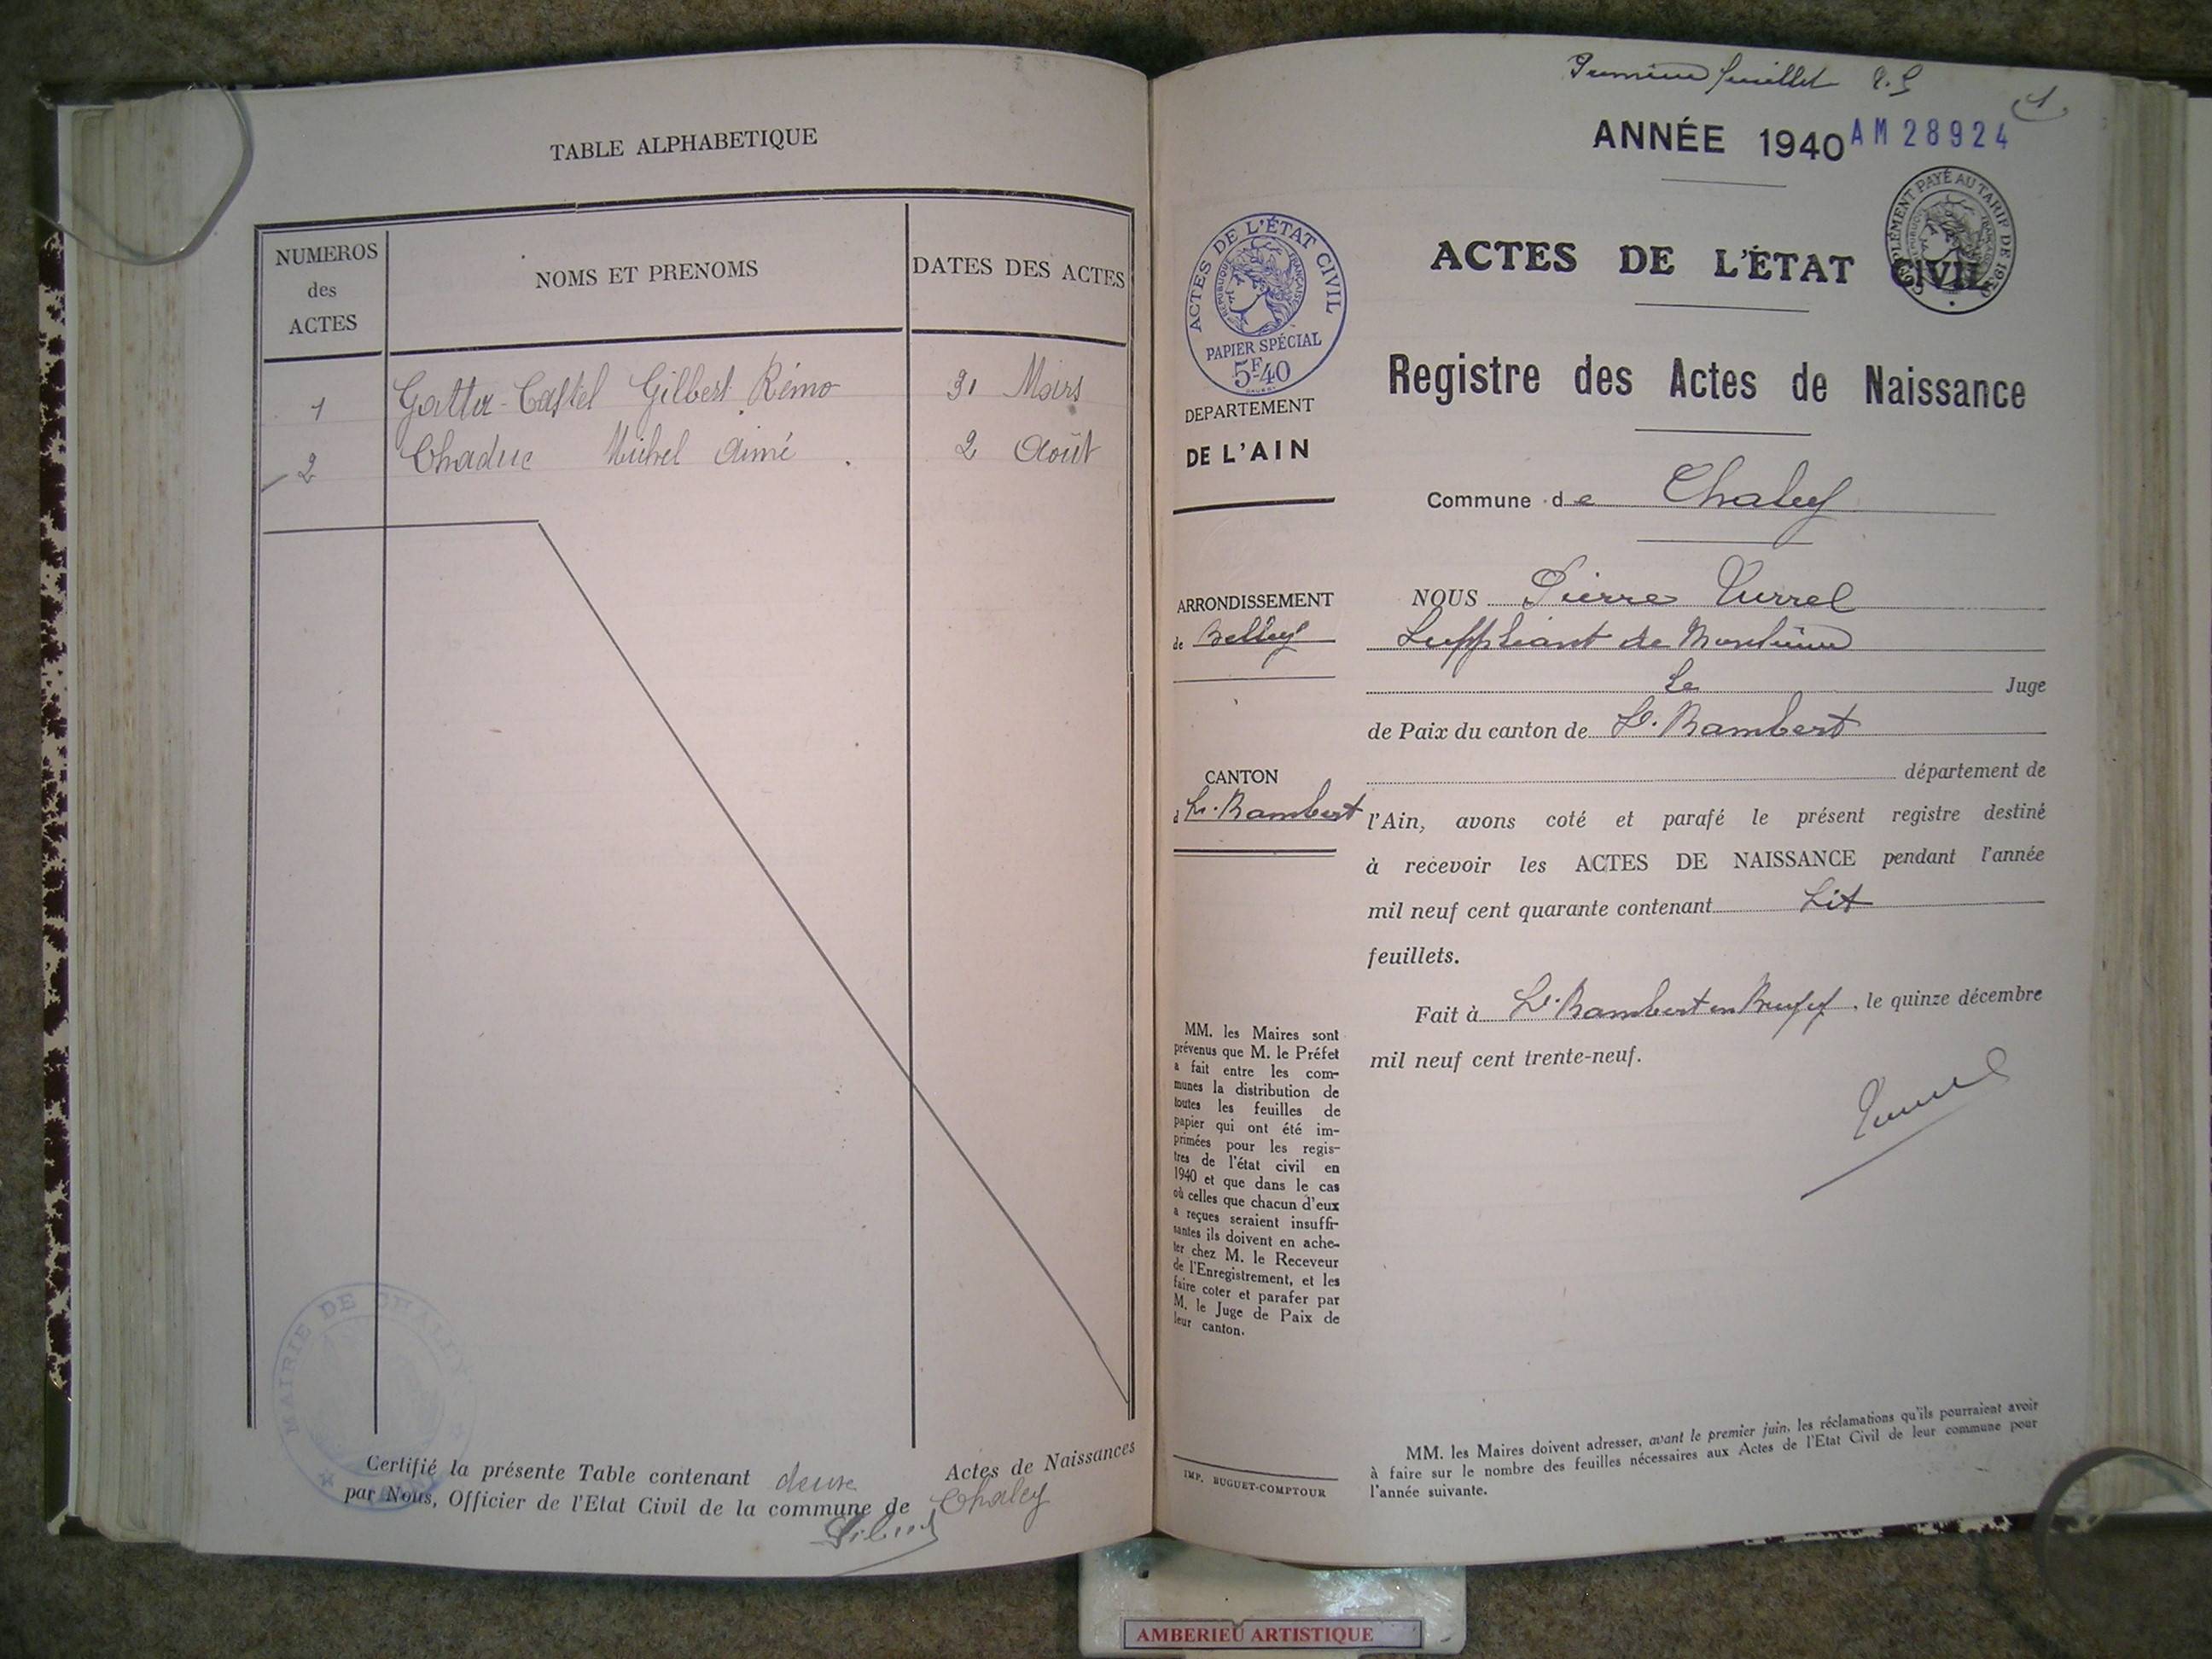 TABLE ALPHABETIQUE
NUMEROS
des
ACTES
NOMS ET PRENOMS
DATES DES ACTES
1 Gatta-Castel Gilbert Rémo 31 Mars
2 Chaduc Michel Aimé 2 Août
MAIRIE DE CHALEY
Certifié la présente Table contenant deux Actes de Naissances
par Nous, Officier de l'Etat Civil de la commune de Chaley
Premier feuillet
1
ANNÉE 1940
AM 28924
COMPLÉMENT PAYÉ AU TARIF DE
ACTES DE L'ÉTAT CIVIL
RÉPUBLIQUE FRANÇAISE
PAPIER SPÉCIAL
5F40
DEPARTEMENT
DE L'AIN
ARRONDISSEMENT
de Belley
CANTON
d St. Rambert
MM. les Maires sont
prévenus que M. le Préfet
a fait entre les com-
munes la distribution de
toutes les feuilles de
papier qui ont été im-
primées pour les regis-
tres de l'état civil en
1940 et que dans le cas
où celles que chacun d'eux
a reçues seraient insuffi-
santes ils doivent en ache-
ter chez M. le Receveur
de l'Enregistrement, et les
faire coter et parafer par
M. le Juge de Paix de
leur canton.
IMP. BUGUET-COMPTOUR
ACTES DE L'ÉTAT CIVIL
Registre des Actes de Naissance
Commune de Chaley
NOUS Pierre Turrel
Suppléant de Monsieur
Le Juge
de Paix du canton de St. Rambert
département de
l'Ain, avons coté et parafé le présent registre destiné
à recevoir les ACTES DE NAISSANCE pendant l'année
mil neuf cent quarante contenant
feuillets.
Fait à St. Rambert en Bugey, le quinze décembre
mil neuf cent trente-neuf.
Turrel
MM. les Maires doivent adresser, avant le premier juin, les réclamations qu'ils pourraient avoir
à faire sur le nombre des feuilles nécessaires aux Actes de l'Etat Civil de leur commune pour
l'année suivante.
AMBERIEU ARTISTIQUE